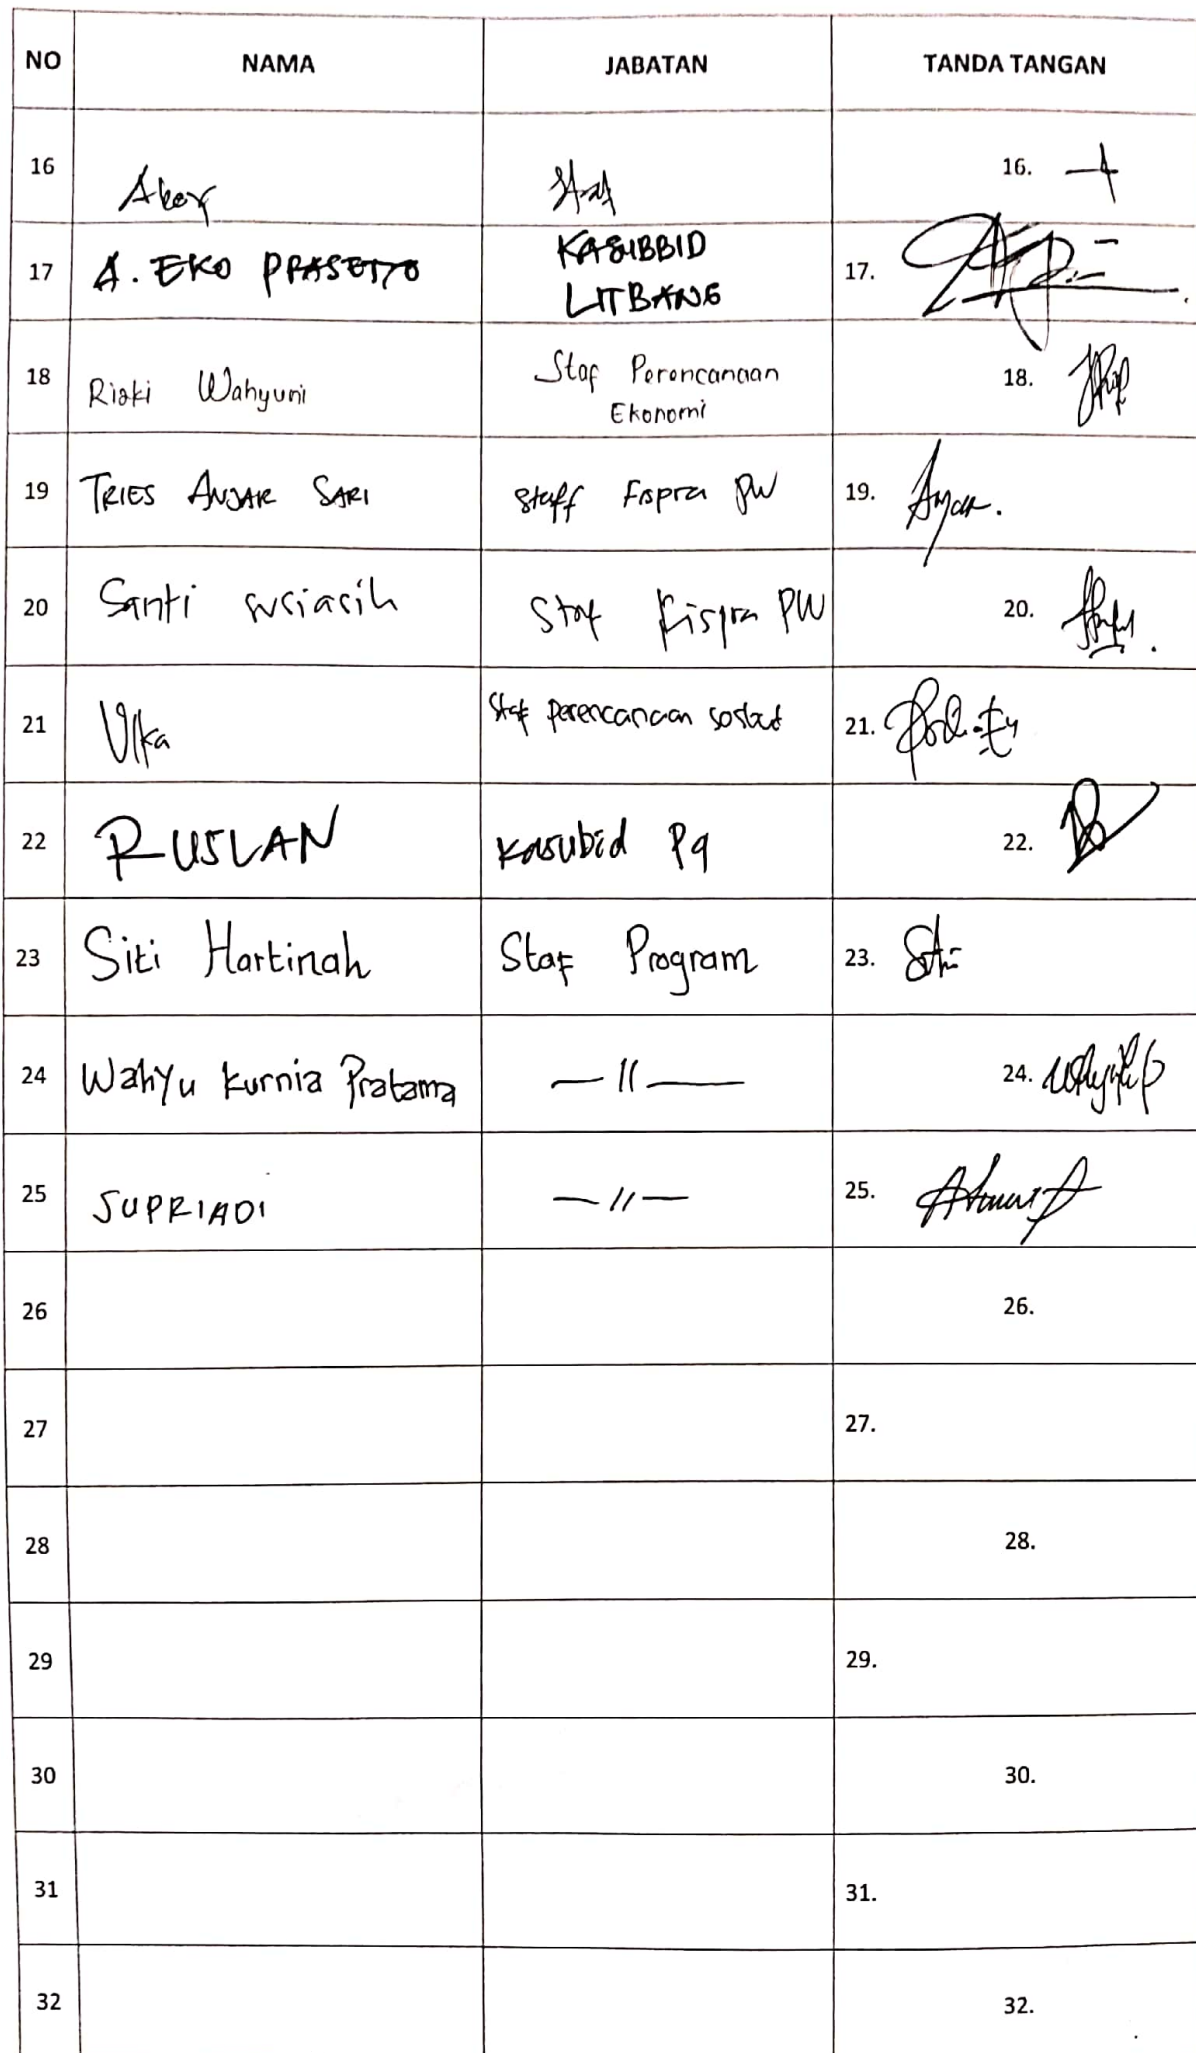 NO NAMA JABATAN TANDA TANGAN
16 Staf 16.
17 A. EKO PRASETYO KASUBBID 17.
LITBANG
18 Riski Wahyuni Staf Perencanaan 18.
Ekonomi
19 TRIES ANJAR SARI Staff Fispra PW 19. Anjar.
20 Santi susiasih Staf Fispra PW 20.
21 Ulka Staf perencanaan sosbud 21.
22 RUSLAN Kasubid 22.
23 Siti Hartinah Staf Program 23. Siti
24 Wahyu Kurnia Pratama — 11 — 24.
25 SUPRIADI — 11 — 25.
26 26.
27 27.
28 28.
29 29.
30 30.
31 31.
32 32.